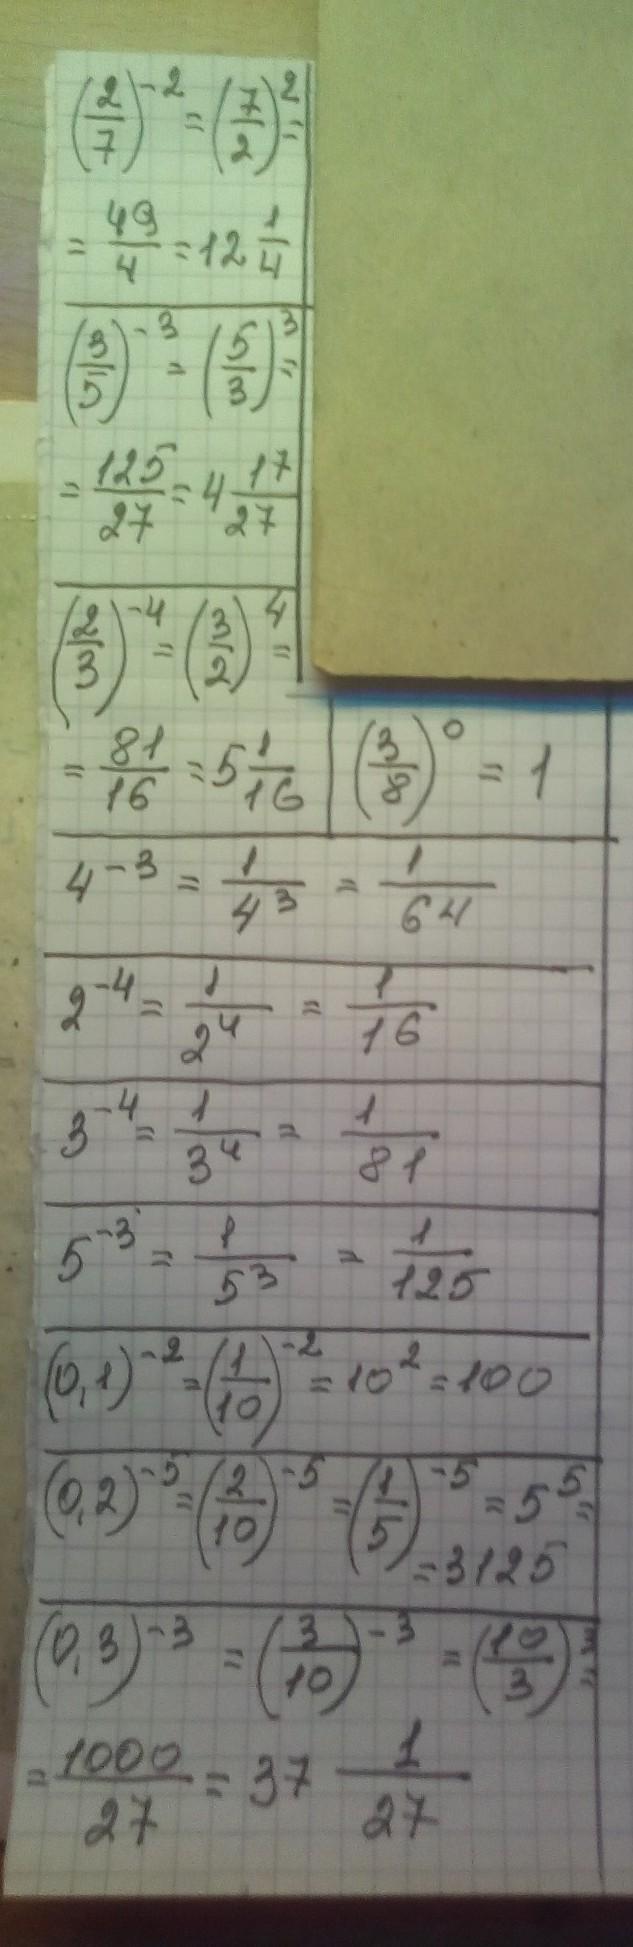 (2/7)^-2 = (7/2)^2 =
= 49/4 = 12 1/4
(3/5)^-3 = (5/3)^3 =
= 125/27 = 4 17/27
(2/3)^-4 = (3/2)^4 =
= 81/16 = 5 1/16
(3/8)^0 = 1
4^-3 = 1/4^3 = 1/64
2^-4 = 1/2^4 = 1/16
3^-4 = 1/3^4 = 1/81
5^-3 = 1/5^3 = 1/125
(0,1)^-2 = (1/10)^-2 = 10^2 = 100
(0,2)^-5 = (2/10)^-5 = (1/5)^-5 = 5^5 =
= 3125
(0,3)^-3 = (3/10)^-3 = (10/3)^3 =
= 1000/27 = 37 1/27